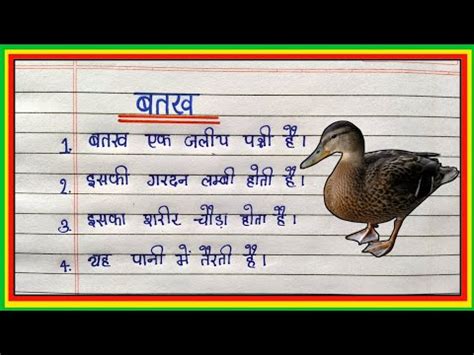 बतख
1. बतख एक जलीय पक्षी है।
2. इसकी गरदन लम्बी होती है।
3. इसका शरीर चौड़ा होता है।
4. यह पानी में तैरती है।